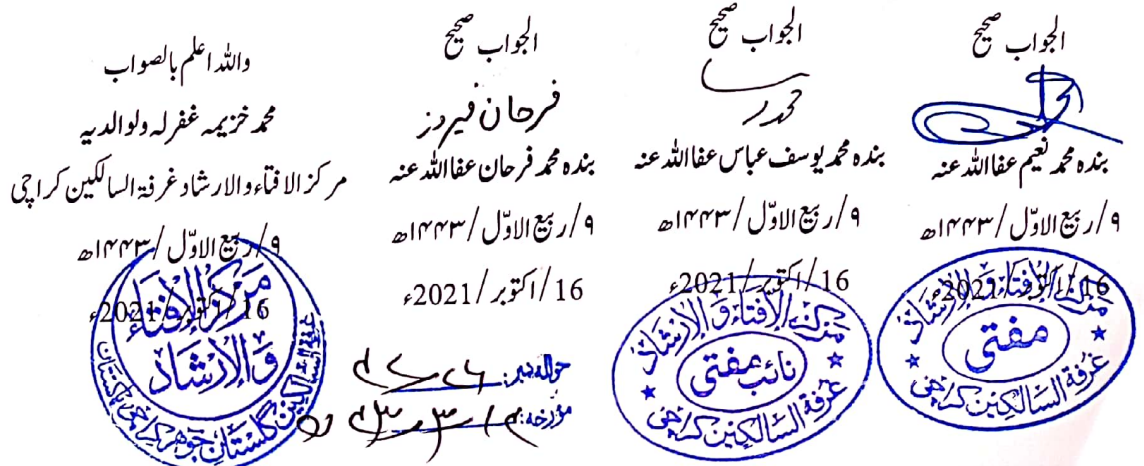 الجواب صحیح
بندہ محمد نعیم عفا اللہ عنہ
۹/ربیع الاوّل/۱۴۴۳ھ
16/اکتوبر/2021ء
مرکز الإفتاء و الإرشاد
مفتی
غرفة السالكين كراچی
الجواب صحیح
بندہ محمد یوسف عباس عفا اللہ عنہ
۹/ربیع الاوّل/۱۴۴۳ھ
16/اکتوبر/2021ء
مرکز الإفتاء و الإرشاد
نائب مفتی
غرفة السالكين كراچی
الجواب صحیح
فرحان فیروز
بندہ محمد فرحان عفا اللہ عنہ
۹/ربیع الاوّل/۱۴۴۳ھ
16/اکتوبر/2021ء
حوالہ نمبر:
مؤرخہ:
واللہ اعلم بالصواب
محمد خزیمہ غفر لہ ولوالدیہ
مرکز الافتاء والارشاد غرفۃ السالکین کراچی
۹/ربیع الاوّل/۱۴۴۳ھ
16/اکتوبر/2021ء
مرکز الإفتاء
والإرشاد
غرفة السالكين گلستان جوهر كراچی پاکستان